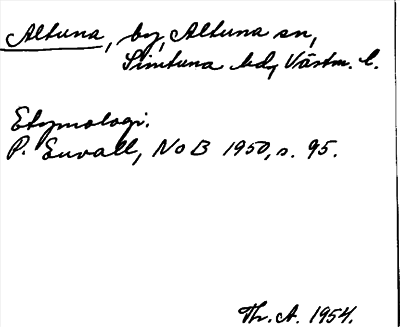 Altuna, by, Altuna sn,
Simtuna hd, Västm. l.
Etymologi.
P. Envall, NoB 1950, s. 95.
Th. A. 1954.